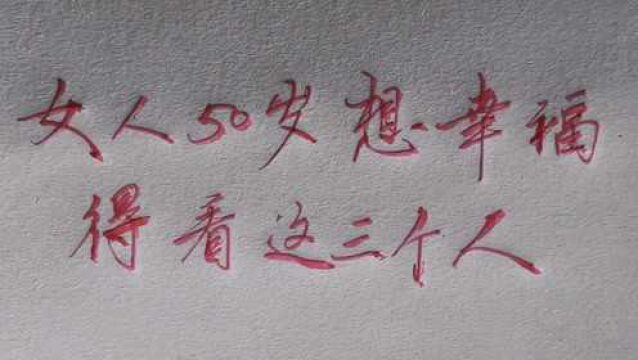 女人50岁想幸福
得看这三个人